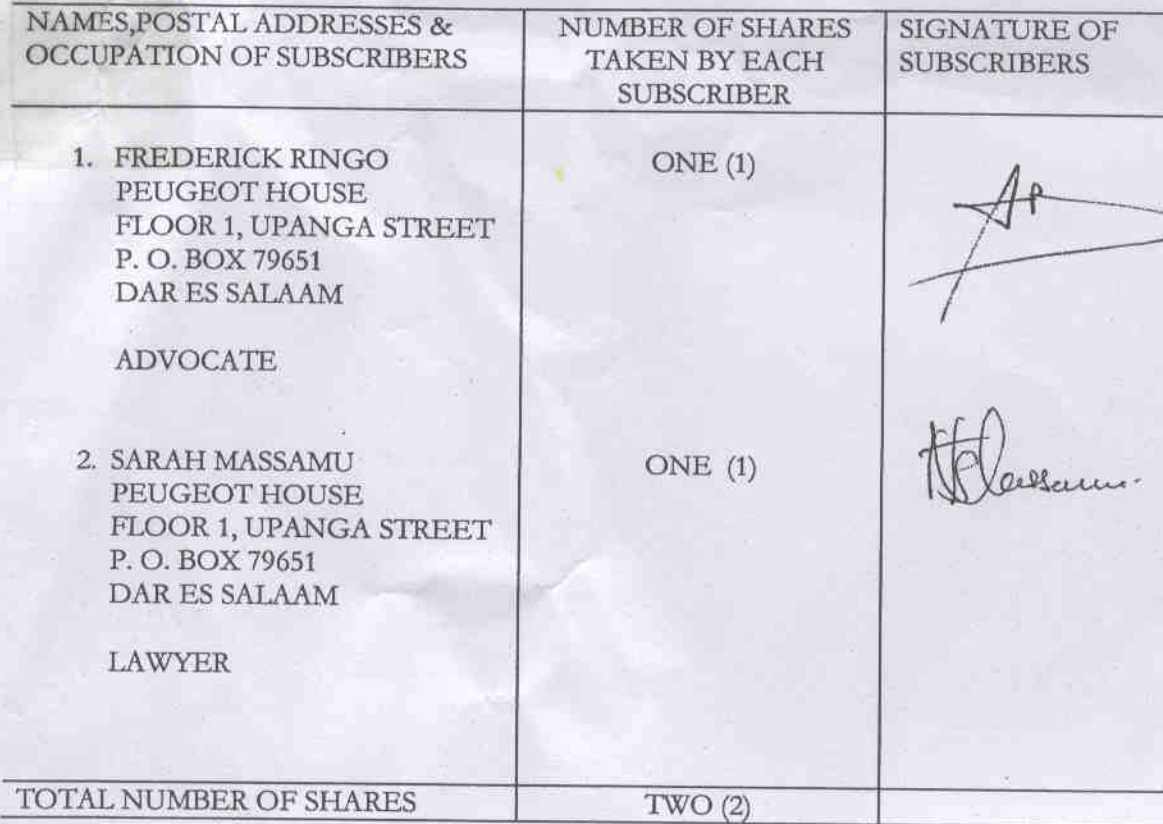 NAMES,POSTAL ADDRESSES &
OCCUPATION OF SUBSCRIBERS
NUMBER OF SHARES
TAKEN BY EACH
SUBSCRIBER
SIGNATURE OF
SUBSCRIBERS
1. FREDERICK RINGO
PEUGEOT HOUSE
FLOOR 1, UPANGA STREET
P. O. BOX 79651
DAR ES SALAAM
ADVOCATE
ONE (1)
2. SARAH MASSAMU
PEUGEOT HOUSE
FLOOR 1, UPANGA STREET
P. O. BOX 79651
DAR ES SALAAM
LAWYER
ONE (1)
TOTAL NUMBER OF SHARES
TWO (2)